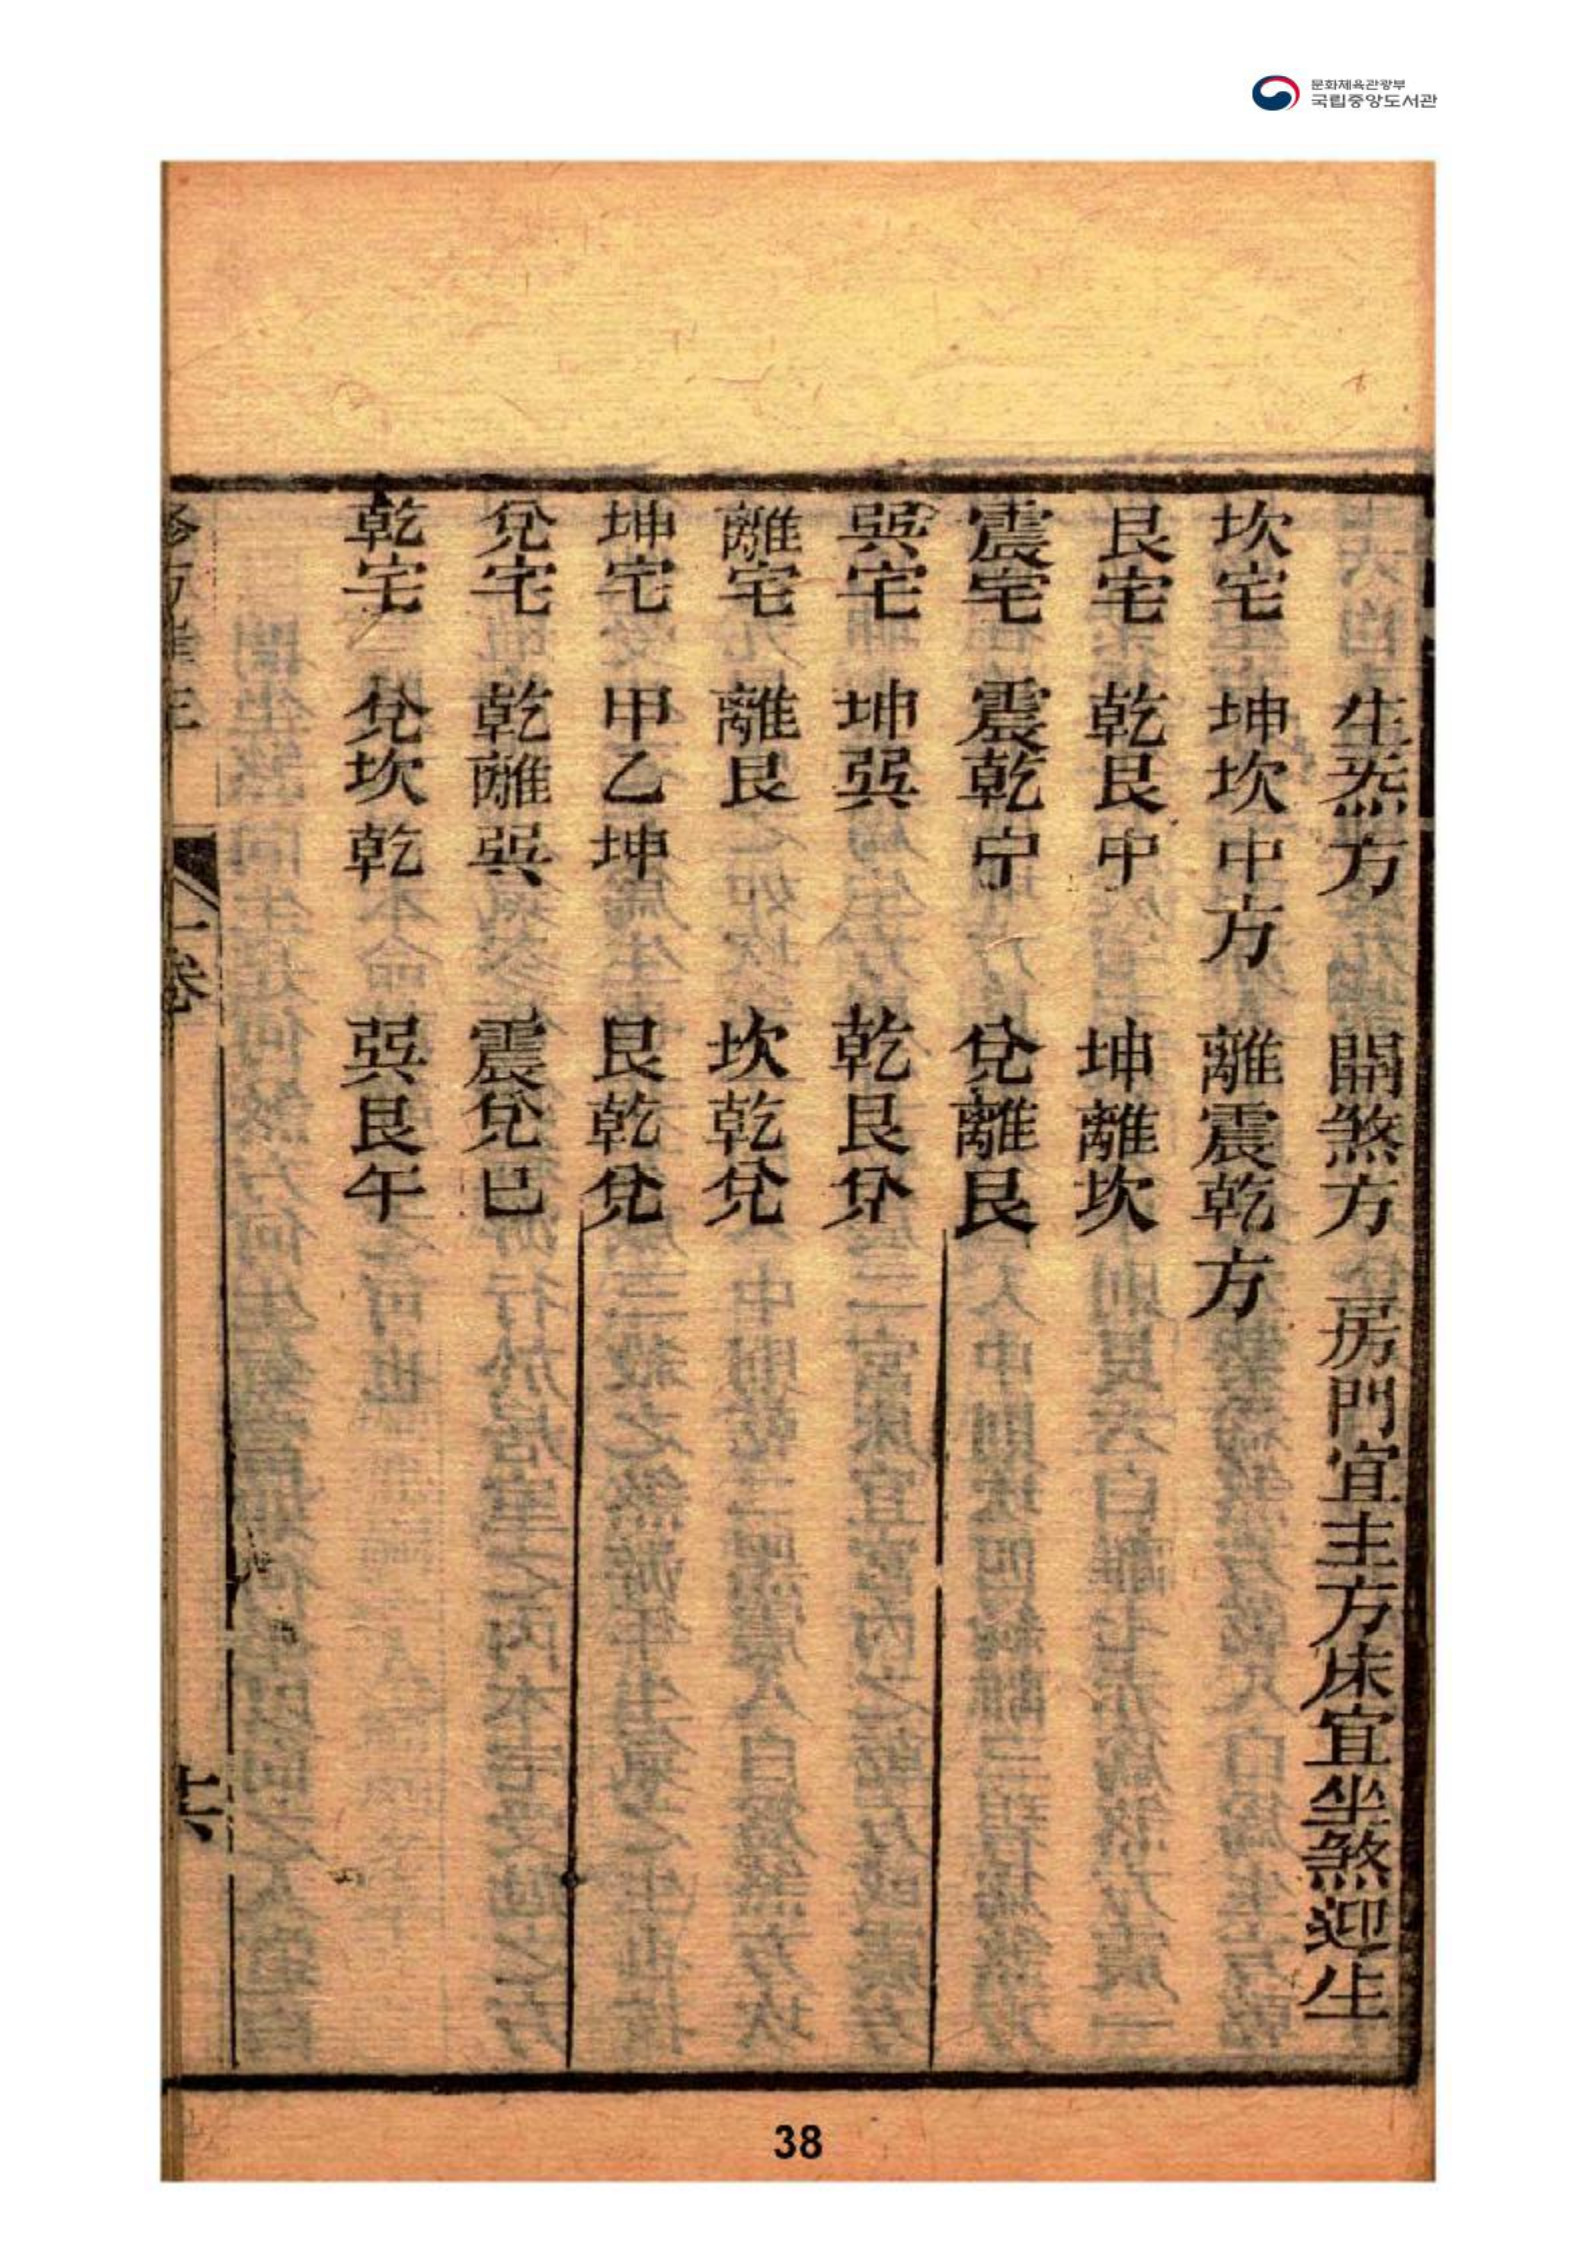 문화체육관광부
국립중앙도서관
生炁方 開煞方 房門宜主方床宜坐煞迎生
坎宅 坤坎中方 離震乾方
艮宅 乾艮中 坤離坎
震宅 震乾宁 兌離艮
巽宅 坤巽 乾艮兌
離宅 離艮 坎乾兌
坤宅 甲乙坤 艮乾兌
兌宅 乾離巽 震兌巳
乾宅 兌坎乾 巽艮午
一卷 十六
38